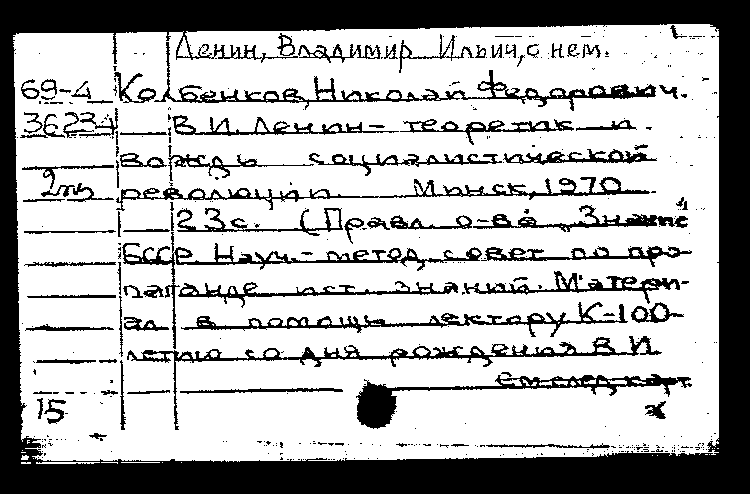 Ленин, Владимир Ильич, о нем.
69-4 Колбенков, Николай Федорович.
36234 В.И. Ленин - теоретик и
вождь социалистической
революции. Минск, 1970
23с. (Правл. о-ва „Знание"
БССР. Науч.-метод. совет по про-
паганде ист. знаний. Матери-
ал в помощь лектору К-100-
летию со дня рождения В.И.
см след карт
15